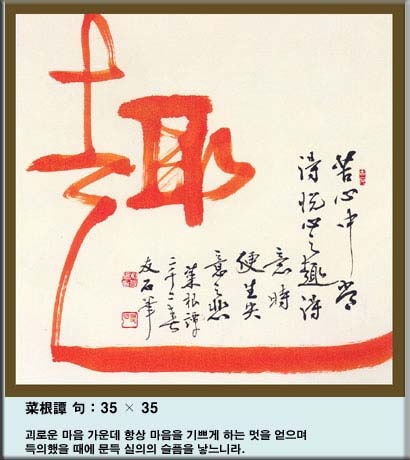 趣
苦心中常
得悅心之趣得
意時
便生失
意之悲
菜根譚
二千二春
友石筆
菜根譚 句 : 35 × 35
괴로운 마음 가운데 항상 마음을 기쁘게 하는 멋을 얻으며
득의했을 때에 문득 실의의 슬픔을 낳느니라.